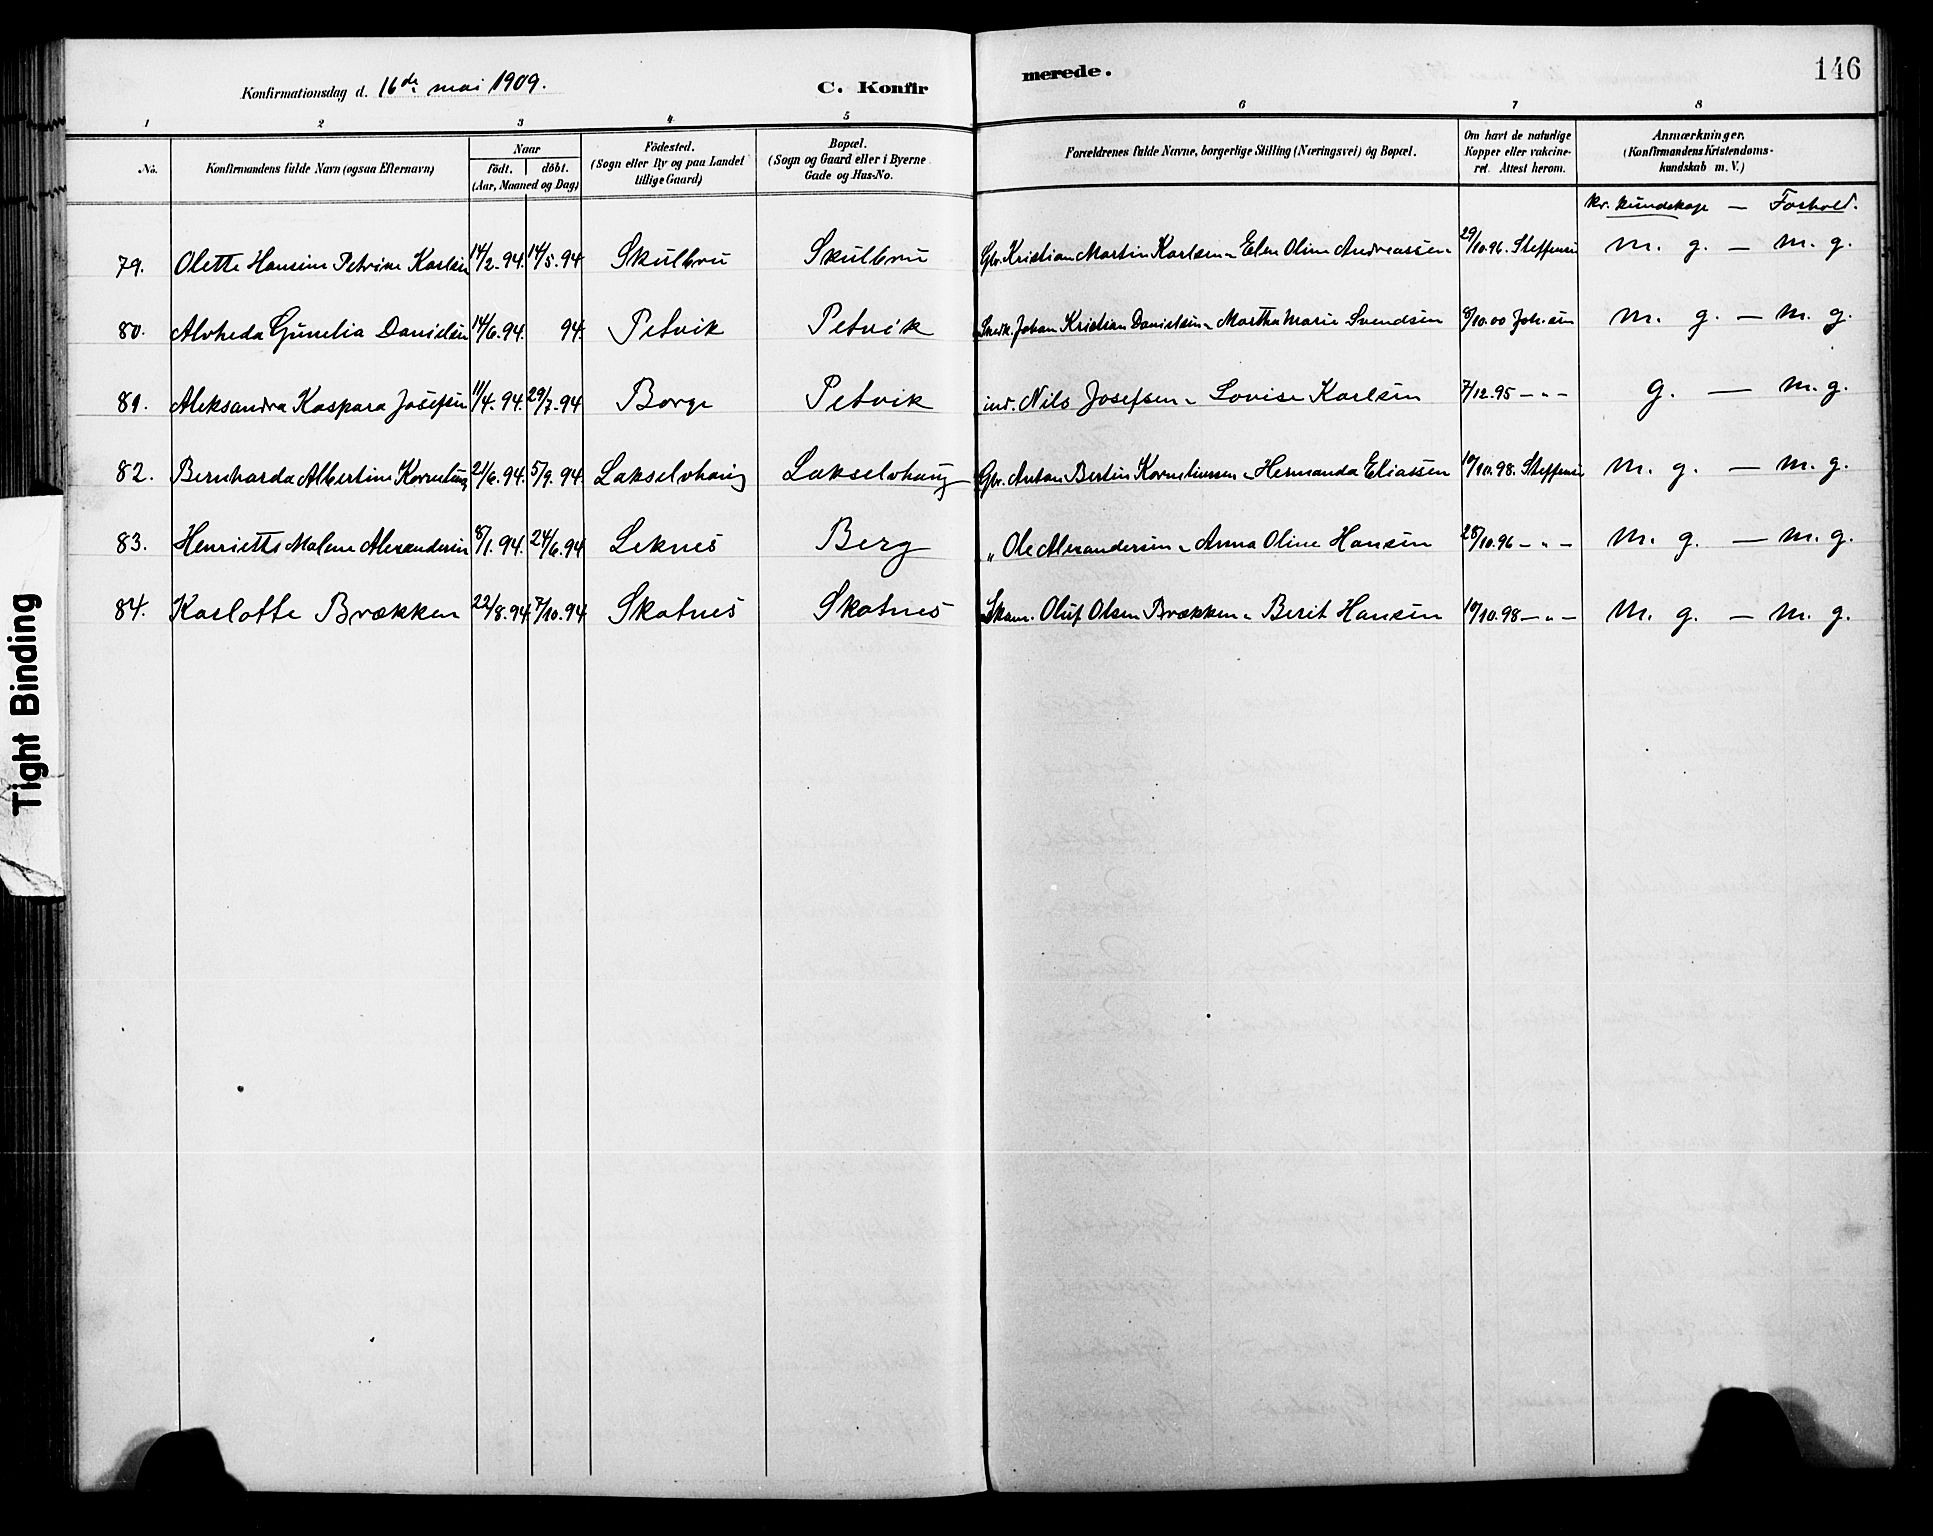 146
Konfirmationsdag d. 16de mai 1909. C. Konfirmerede.
1 2 3 4 5 6 7 8
No. Konfirmandens fulde Navn (ogsaa Efternavn) Naar födt. döbt. (Aar, Maaned og Dag) Födested. (Sogn eller By og paa Landet tillige Gaard) Bopæl. (Sogn og Gaard eller i Byerne Gade og Hus-No. Forældrenes fulde Navne, borgerlige Stilling (Næringsvei) og Bopæl. Om havt de naturlige Kopper eller vakcineret. Attest herom. Anmærkninger. (Konfirmandens Kristendomskundskab m. V.)
Kr. kundskap — Forhold.
79. Olette Hansine Petrine Karlsen 14/2.94. 14/5.94 Skulbru Skulbru Gbr. Kristian Martin Karlsen „ Elen Oline Andreassen 29/10.96. Steffensen M. g. — M. g.
80. Alvheda Gunelia Danielsen 14/6.94. 94. Petvik Petvik Snedk. Johan Kristian Danielsen „ Martha Marie Svendsen 8/10.00 Joh.sen M. g. — M. g.
81. Aleksandra Kaspara Josefsen 11/4.94. 29/7.94 Borge Petvik ind. Nils Josefsen „ Lovise Karlsen 7/12.95 — „ — g. — M. g.
82. Bernharda Albertine 21/6.94. 5/9.94 Lakselvhaug Lakselvhaug Gbr. Anton Bertin Korneliussen „ Hermanda Eliassen 10/10.98. Steffensen M. g. — M. g.
83. Henriette Malene Alexandersen 8/1.94. 24/6.94 Leknes Berg „ Ole Alexandersen „ Anna Oline Hansen 28/10.96 — „ — M. g. — M. g.
84. Karlotte Brækken 22/8.94 7/10.94 Skotnes Skotnes Skom. Oluf Olsen Brækken „ Berit Hansen 10/10.98 — „ — M. g. — M. g.
Tight Binding